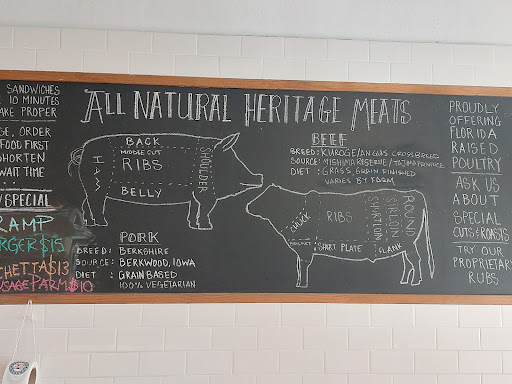 SANDWICHES
10 MINUTES
PROPER
ORDER
FOOD FIRST
SHORTEN
WAIT TIME
SPECIAL
RAMP
$15
$13
$10
ALL NATURAL HERITAGE MEATS
BACK
MIDDLE CUT
RIBS
BELLY
HAM
SHOULDER
PORK
BREED: BERKSHIRE
SOURCE: BERKWOOD, IOWA
DIET: GRAIN BASED
100% VEGETARIAN
BEEF
BREED: KUROGE/ANGUS CROSSBREED
SOURCE: MISHIMA RESERVE /
DIET: GRASS, GRAIN FINISHED
VARIES BY FARM
CHUCK
RIBS
SHORTLOIN
SIRLOIN
ROUND
BRISKET
SHRT PLATE
FLANK
PROUDLY
OFFERING
FLORIDA
RAISED
POULTRY
ASK US
ABOUT
SPECIAL
CUTS & ROASTS
TRY OUR
PROPRIETARY
RUBS